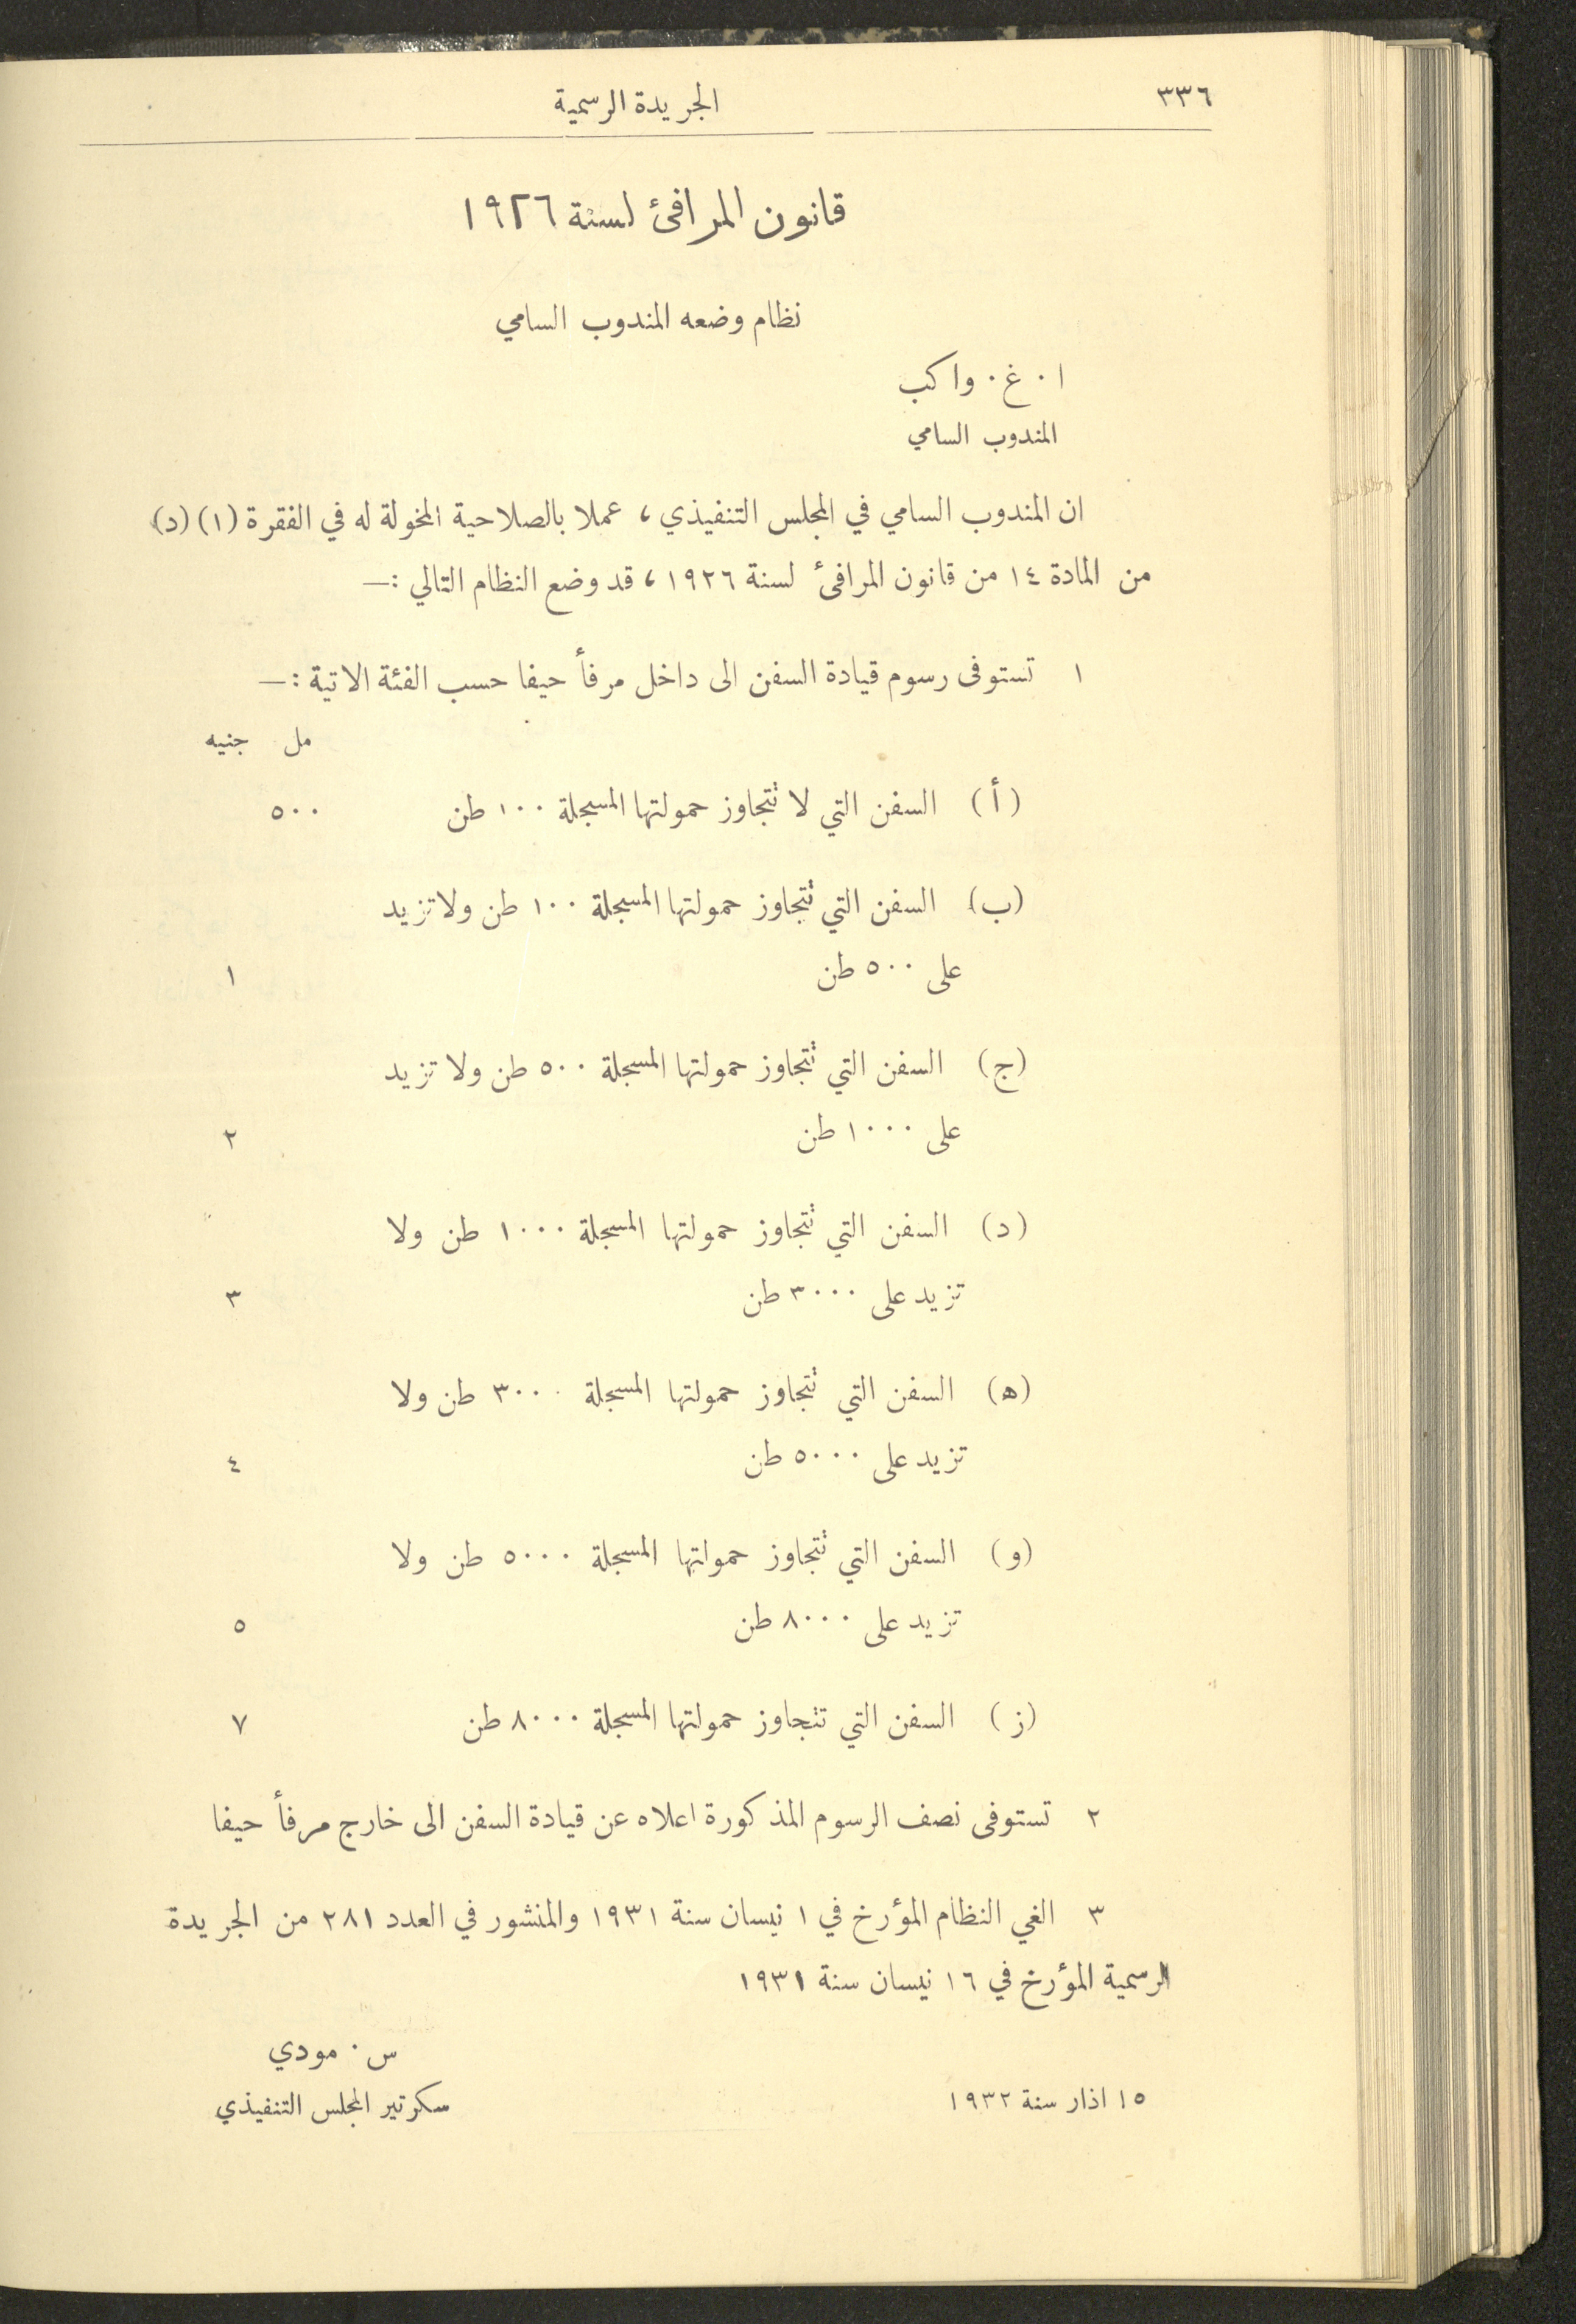 ٣٣٦
الجريدة الرسمية
قانون المرافئ لسنة ١٩٢٦
نظام وضعه المندوب السامي
ا . غ . واكب
المندوب السامي
ان المندوب السامي في المجلس التنفيذي ، عملا بالصلاحية المخولة له في الفقرة (١) (د)
من المادة ١٤ من قانون المرافئ لسنة ١٩٢٦ ، قد وضع النظام التالي :—
١ تستوفى رسوم قيادة السفن الى داخل مرفأ حيفا حسب الفئة الاتية :—
مل جنيه
(أ) السفن التي لا تتجاوز حمولتها المسجلة ١٠٠ طن ٥٠٠
(ب) السفن التي تتجاوز حمولتها المسجلة ١٠٠ طن ولا تزيد
على ٥٠٠ طن ١
(ج) السفن التي تتجاوز حمولتها المسجلة ٥٠٠ طن ولا تزيد
على ١٠٠٠ طن ٢
(د) السفن التي تتجاوز حمولتها المسجلة ١٠٠٠ طن ولا
تزيد على ٣٠٠٠ طن ٣
(ه) السفن التي تتجاوز حمولتها المسجلة ٣٠٠٠ طن ولا
تزيد على ٥٠٠٠ طن ٤
(و) السفن التي تتجاوز حمولتها المسجلة ٥٠٠٠ طن ولا
تزيد على ٨٠٠٠ طن ٥
(ز) السفن التي تتجاوز حمولتها المسجلة ٨٠٠٠ طن ٧
٢ تستوفى نصف الرسوم المذكورة اعلاه عن قيادة السفن الى خارج مرفأ حيفا
٣ الغي النظام المؤرخ في ١ نيسان سنة ١٩٣١ والمنشور في العدد ٢٨١ من الجريدة
الرسمية المؤرخ في ١٦ نيسان سنة ١٩٣١
س . مودي
١٥ اذار سنة ١٩٣٢ سكرتير المجلس التنفيذي